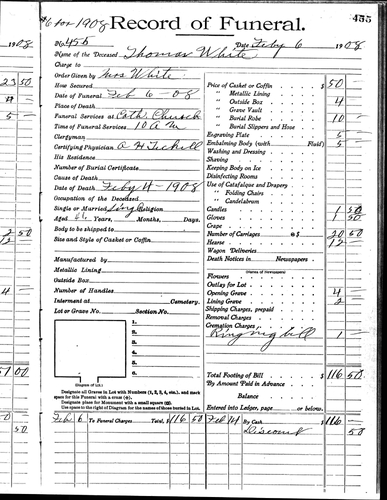 6 Nov 1908 Record of Funeral. 455
1908 No. 455 Date Feby 6 1908
Name of the Deceased Thomas White
Charge to
Order Given by Mrs White
How Secured
Date of Funeral Feb 6 - 08
Place of Death
Funeral Services at Cath. Church
Time of Funeral Services 10 A m
Clergyman
Certifying Physician
His Residence
Number of Burial Certificate
Cause of Death
Date of Death Feby 4 - 1908
Occupation of the Deceased
Single or Married Single Religion
Aged Years, Months, Days.
Body to be shipped to
Size and Style of Casket or Coffin
Manufactured by
Metallic Lining
Outside Box
Number of Handles
Interment at Cemetery.
Lot or Grave No. Section No.
1.
2.
3.
4.
5.
6.
(Diagram of Lot.)
Designate all Graves in Lot with Numbers (1, 2, 3, 4, etc.), and mark
space for this Funeral with a cross (+).
Designate place for Monument with a small square (□).
Use space to the right of Diagram for the names of those buried in Lot.
Price of Casket or Coffin $ 50
" Metallic Lining
" Outside Box 4
" Grave Vault
" Burial Robe 10
" Burial Slippers and Hose
Engraving Plate 5
Embalming Body (with Fluid) 5
Washing and Dressing
Shaving
Keeping Body on Ice
Disinfecting Rooms
Use of Catafalque and Drapery
" Folding Chairs
" Candelabrum
Candles 1 50
Gloves 1 50
Crape
Number of Carriages @$ 20 50
Hearse 12
Death Notices in Newspapers
(Names of Newspapers)
Flowers
Outlay for Lot
Opening Grave 4
Lining Grave 2
Shipping Charges, prepaid
Removal Charges
Cremation Charges
Ringing bill 1
Total Footing of Bill $ 116 50
By Amount Paid in Advance
Balance
Entered into Ledger, page or below.
Feb 6 To Funeral Charges Total, $ 116 50 Feb 14 By Cash $ 116
Discount 50
23 50
4
5
2 50
12
4